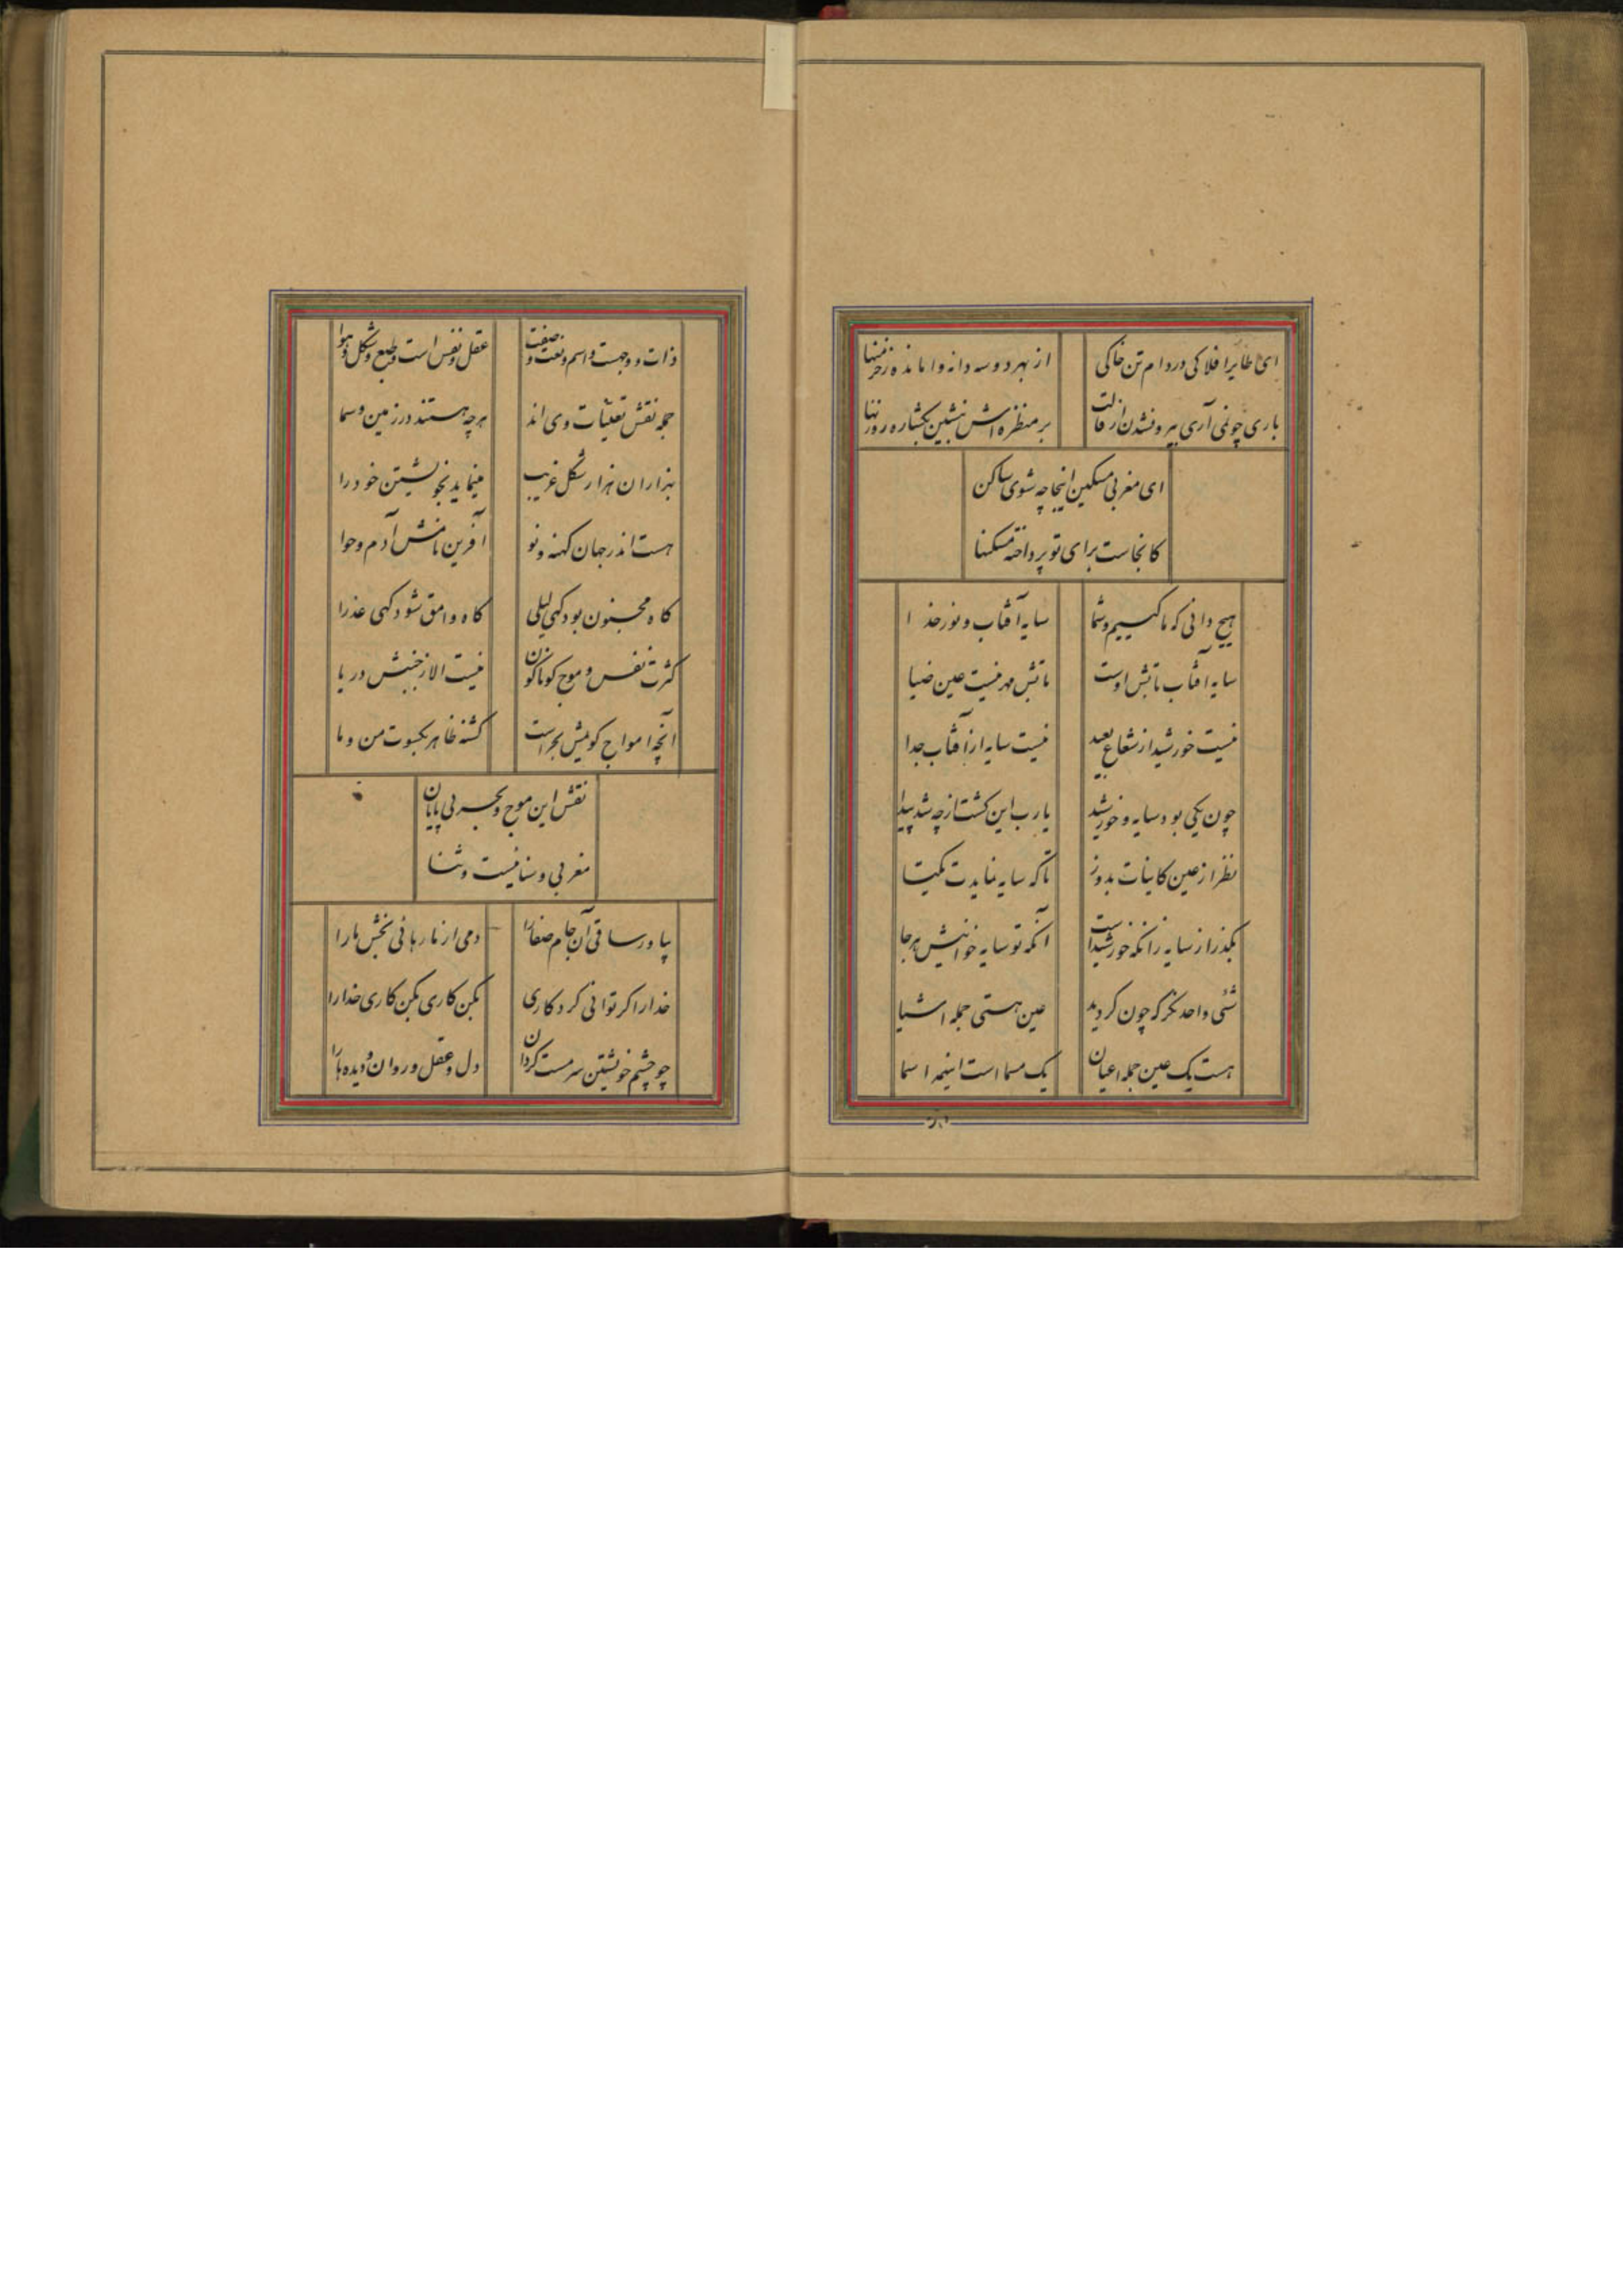 ای طایر افلاکی در دام تن خاکی از بهر دو سه دانه وامانده ز خرمنها
باری چو نمی آری بیرون شدن از قالت بر منظره اش بنشین بگشاره روزنها
ای مغربی مسکین اینجا چه شوی ساکن
کانجاست برای تو پرداخته مسکنها
هیچ دانی که ما کییم و شما سایه آفتاب و نور خدا
سایه آفتاب تابش اوست تابش مهر نیست عین ضیا
نیست خورشید از شعاع بعید نیست سایه از آفتاب جدا
چون یکی بود سایه و خورشید یارب این کشت از چه شد پیدا
نظر از عین کاینات بدوز تا که سایه نمایدت یکتا
بگذر از سایه زانکه خورشید است آنکه تو سایه خوانیش هر جا
شئی واحد نگر که چون کردید عین هستی جمله اشیا
هست یک عین جمله اعیان یک مسما است اینهمه اسما
ذات و وجهت و اسم و نعت و صفت عقل و نفس است و طبع و شکل و هوا
جمله نقش تعینات وی اند هر چه هستند در زمین و سما
بهزاران هزار شکل غریب مینماید بخویشتن خود را
هست اندر جهان کهنه و نو آفرین آدم و حوا
کاه مجنون بود کهی لیلی کاه وامق شود کهی عذرا
کثرت نفس و موج کوناکون نیست الا ز جنبش دریا
آنچه امواج کویمش بحر است کشته ظاهر بکسوت من و ما
نقش این موج و بحر بی پایان
مغربی و سنا نیست و ثنا
بیا ور ساقی آن جام صفا را دمی از ما رهائی بخش ما را
خدا را اکر توانی کرد کاری بکن کاری بکن کاری خدا را
چو چشم خویشتن سرمست کردان دل و عقل و روان و دیده ها را